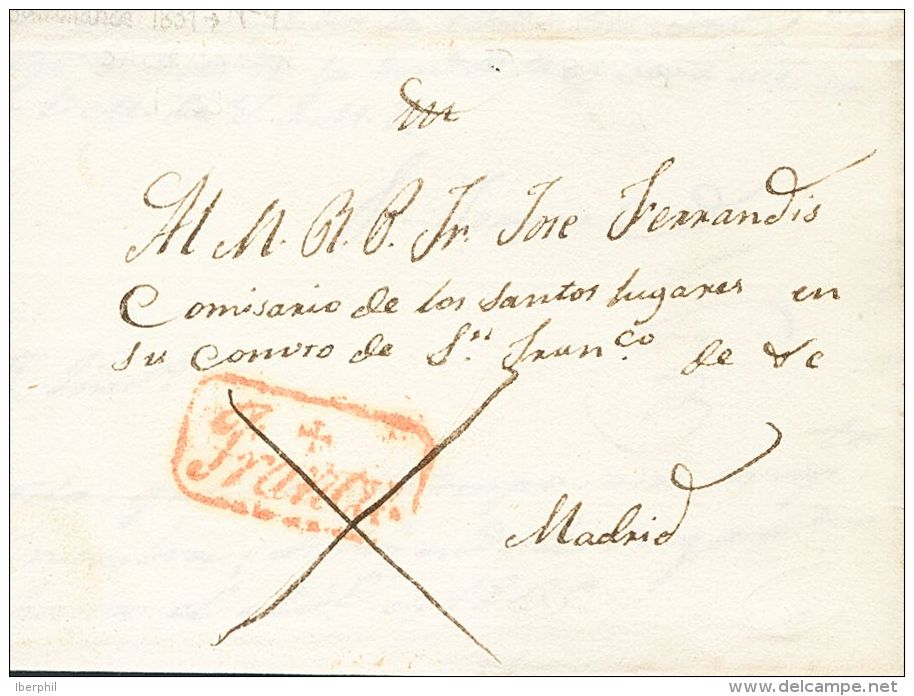 Al M. R. P. Fr. Jose Ferrandis
Comisario de los santos lugares en
su Convto de Sn Franco de &c
Franca.
Madrid
Iberphil
www.delcampe.net